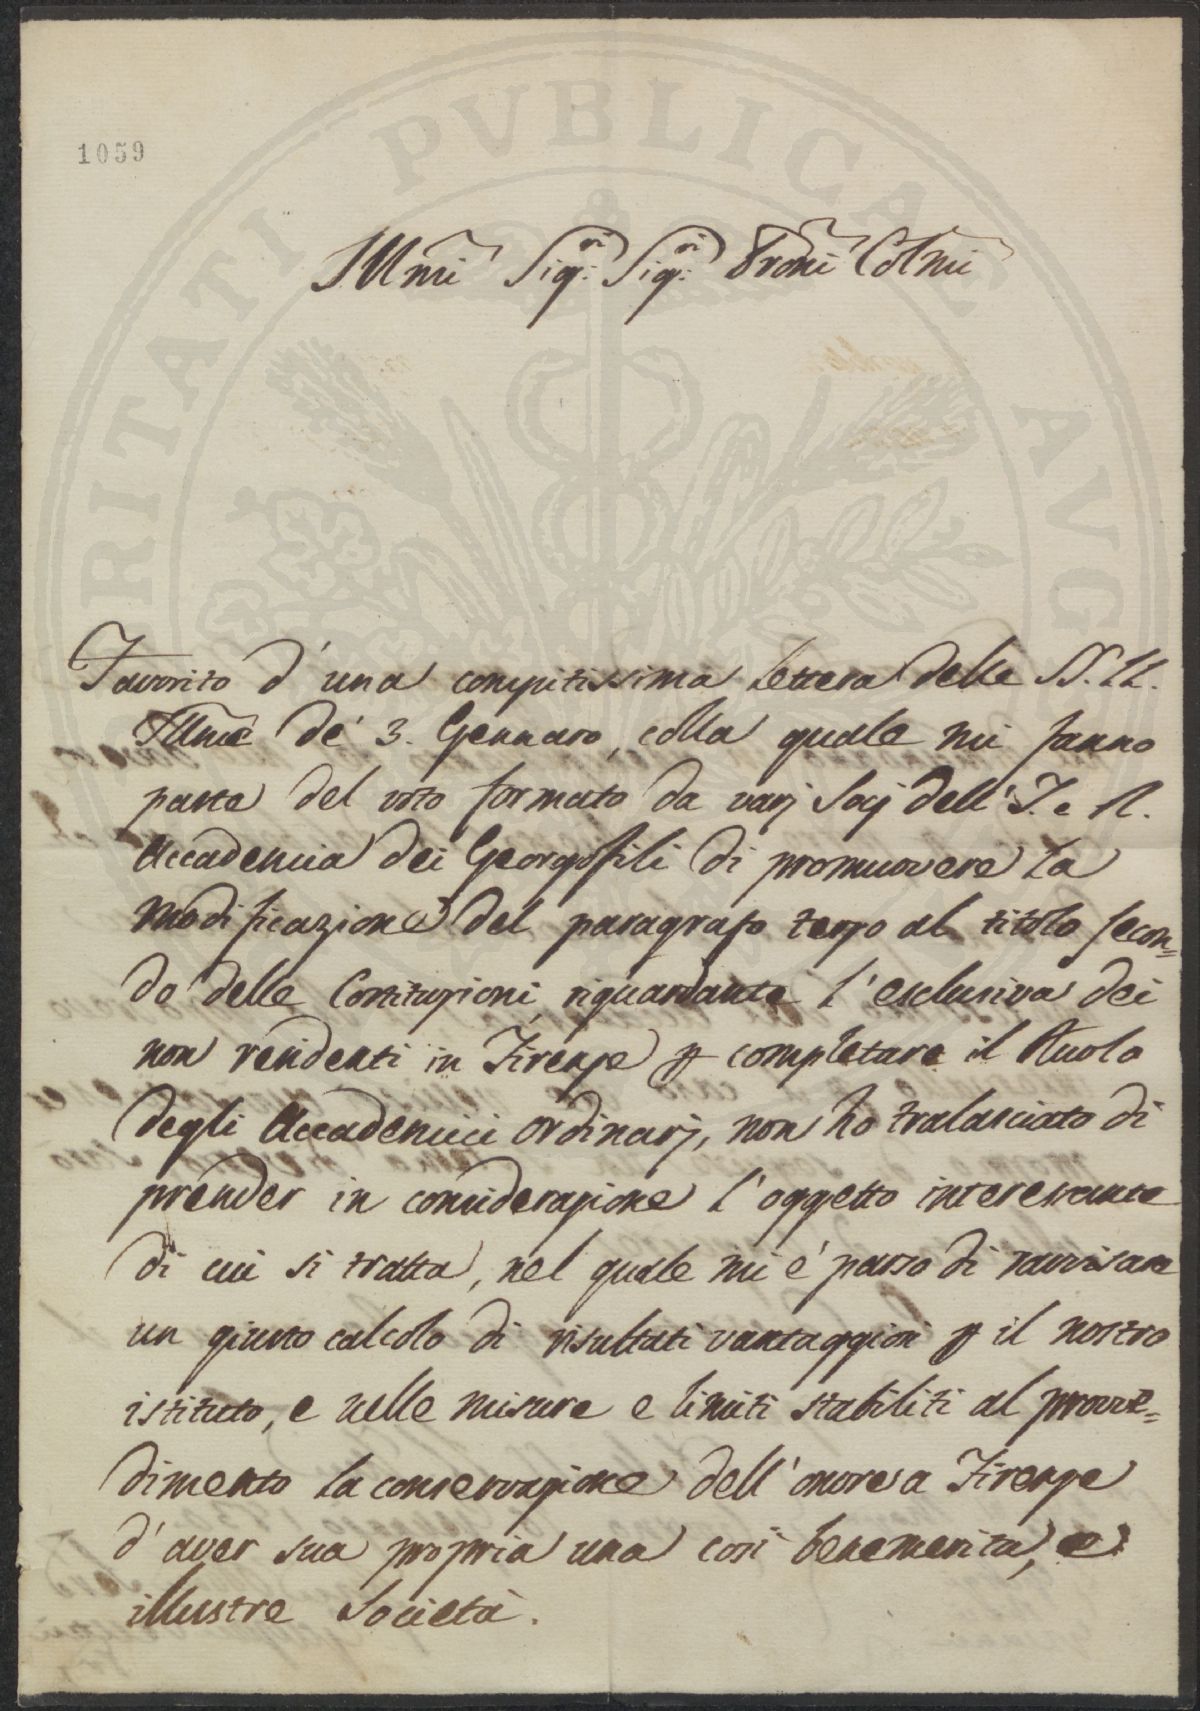 1059
Illmi Sig:ri Sig:ri Proni Colmi
Favorito d'una compitissima Lettera delle SS. LL.
Illme de' 3. Gennaro, colla quale mi fanno
parte del voto formato da varj Socj dell'I. e R.
Accademia dei Georgofili di promuovere la
modificazione del paragrafo terzo al titolo secon=
do delle Costituzioni, riguardante l'esclusiva dei
non residenti in Firenze p completare il Ruolo
degli Accademici ordinarj, non ho tralasciato di
prender in considerazione l'oggetto interessante
di cui si tratta, nel quale mi è parso di ravvisare
un giusto calcolo di risultati vantaggiosi p il nostro
istituto, e nelle misure e limiti stabiliti al provve=
dimento la conservazione dell'onore a Firenze
d'aver sua propria una così benemerita, e
illustre Società.
PVBLICAE